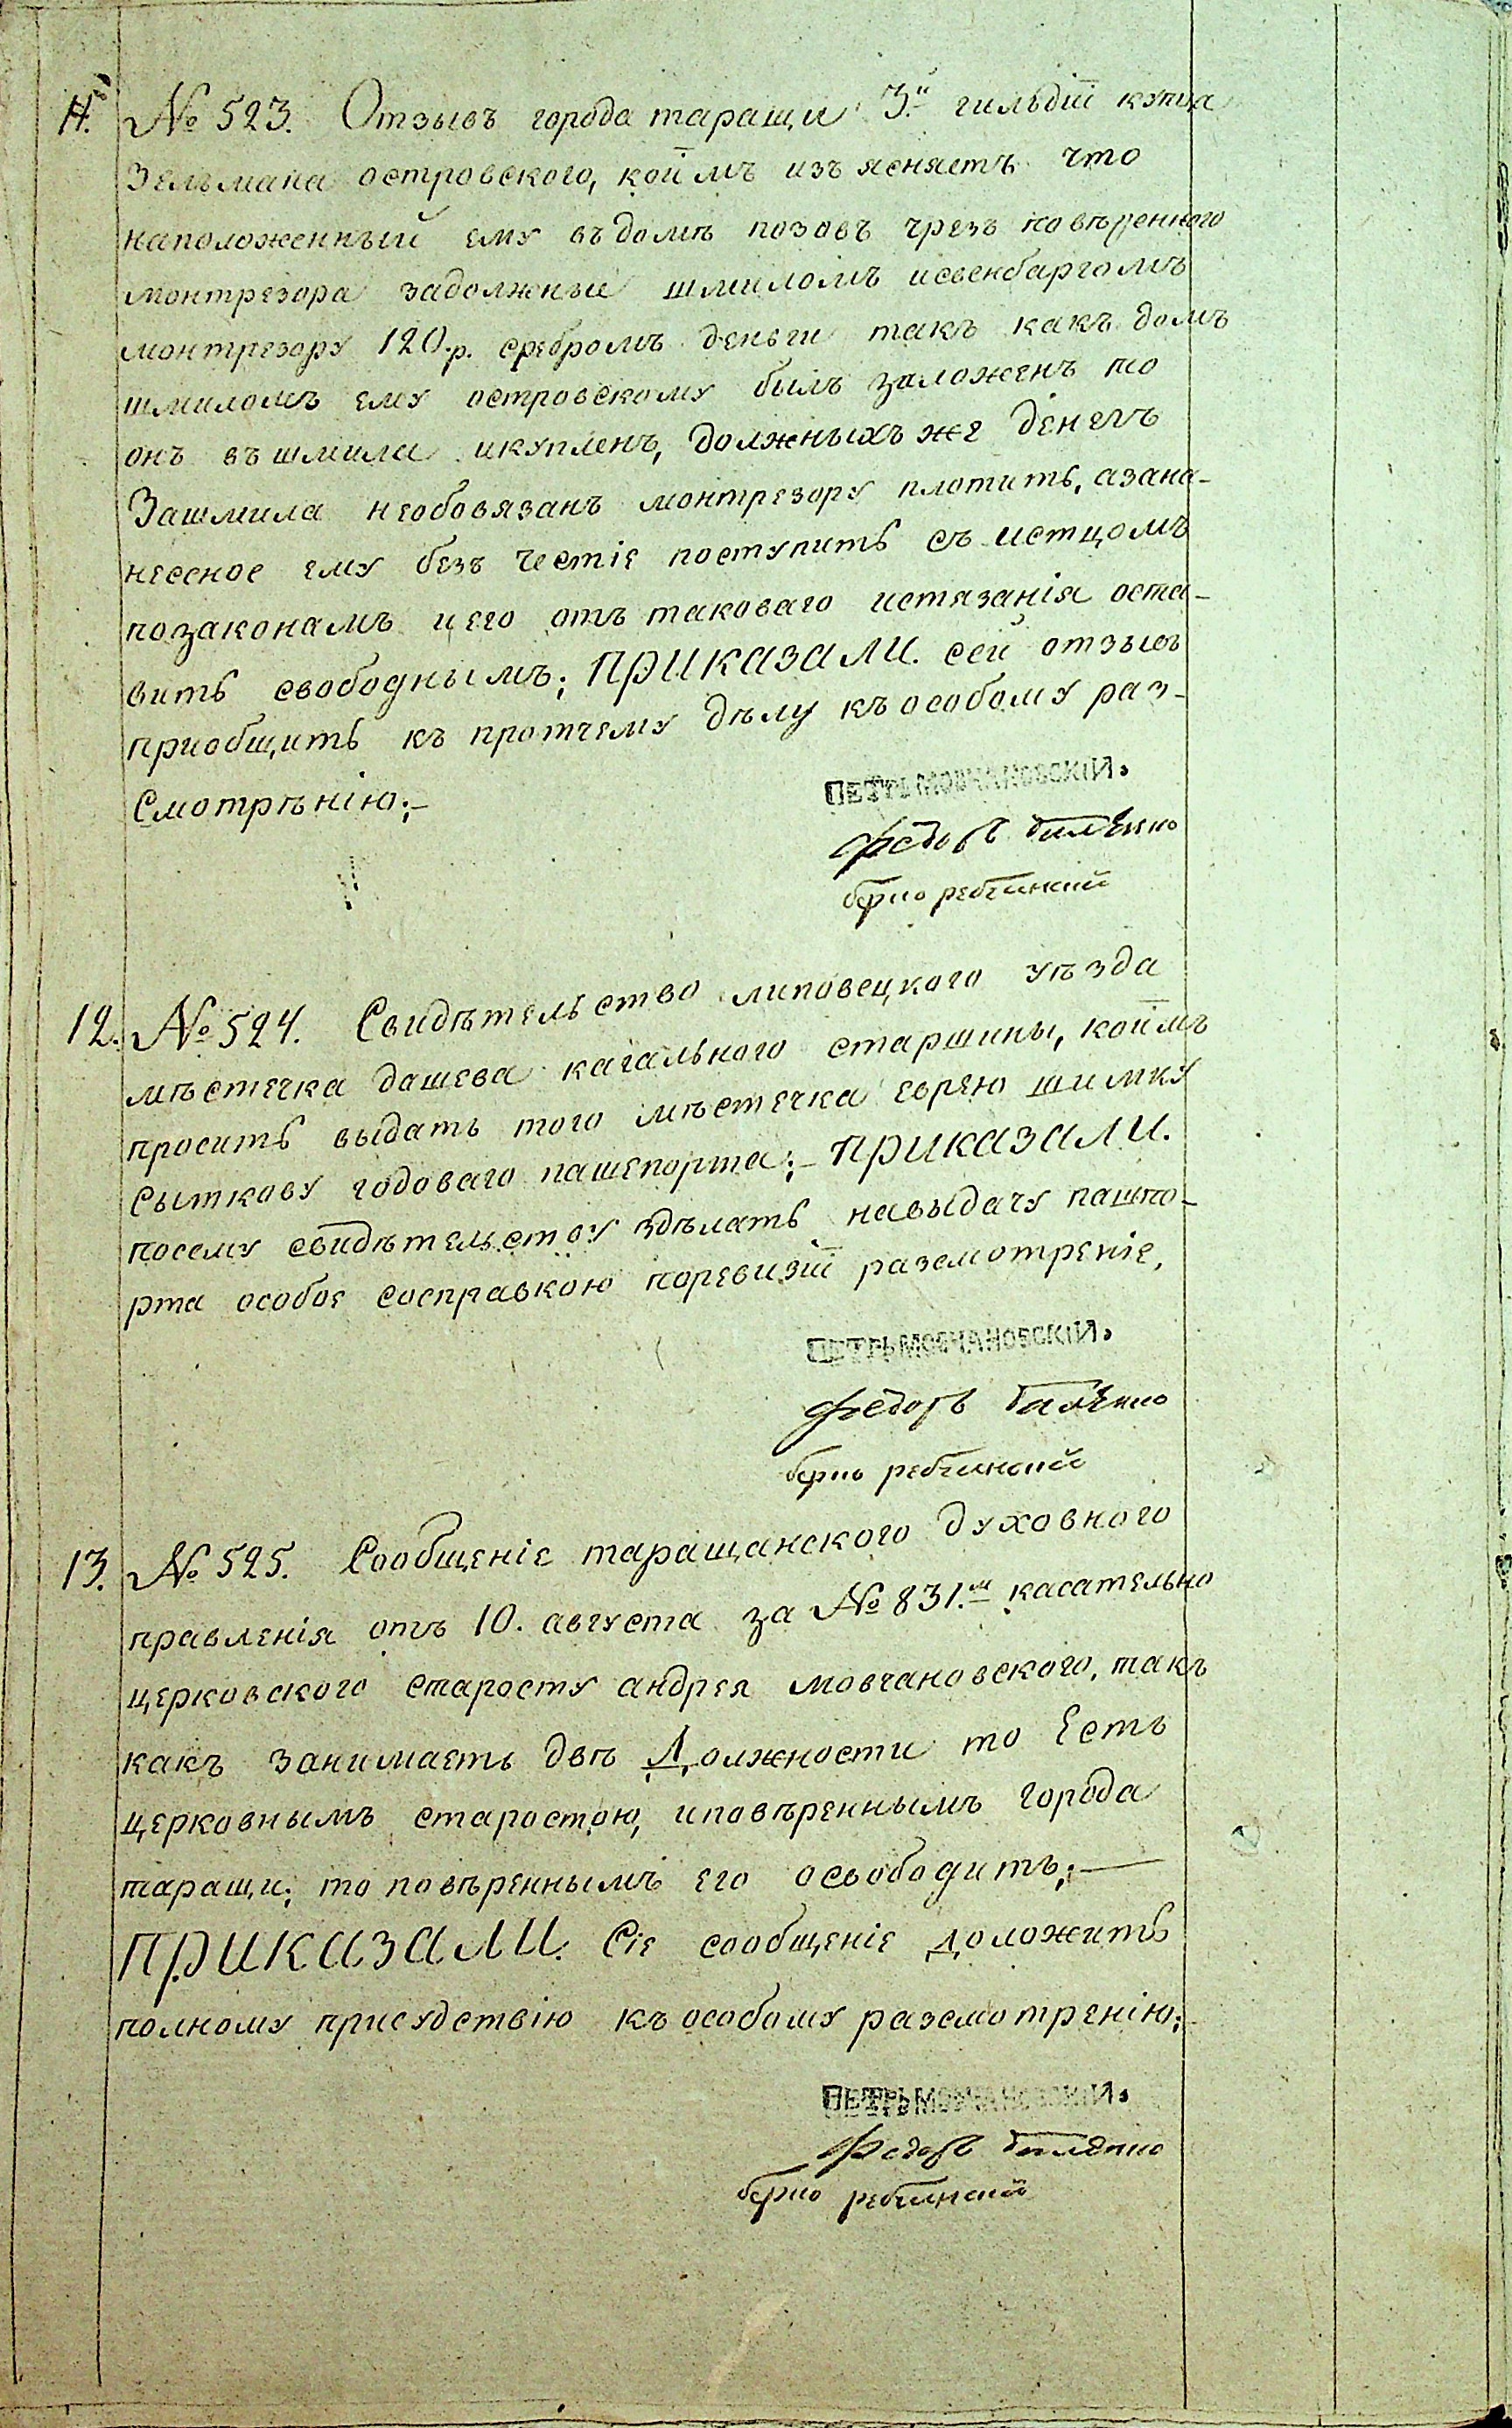 11. № 523. Отзывъ города таращи 3.й гильдіи купца
Зельмана островского, коимъ изъ ясняетъ что
наположенный ему въ домѣ позовъ чрезъ повѣренного
монтрезора задолжные шмиломъ исвенбаргомъ
монтрезору 120.р. сребромъ деньги такъ какъ домъ
шмиломъ ему островскому былъ заложенъ то
онъ въ шмила икупленъ, должныхъ же денегъ
Зашмила необовязанъ монтрезору платить, азана-
несеное ему безъ честіе поступить съ истцомъ
позаконамъ иего отъ таковаго истязанія оста-
вить свободнымъ; ПРИКАЗАЛИ. сей отзывъ
приобщить къ протчему дѣлу къ особому раз-
Смотрѣнію;-
ПЕТРЪ МОВЧАНОВСКІЙ.
Федоръ
берко ребчинский
12. № 524. Свидѣтельство липовецкого уѣзда
мѣстечка дашева кагального старшины, коимъ
проситъ выдать того мѣстечка еврею шимку
Сыткову годоваго пашепорта;- ПРИКАЗАЛИ.
посему свидѣтельству здѣлать навыдачу пашпо-
рта особое сосправкою поревизіи разсмотреніе,
ПЕТРЪ МОВЧАНОВСКІЙ.
Федоръ
берко ребчинский
13. № 525. Сообщеніе таращанского духовного
правленія отъ 10. августа за № 831.м касательно
церковского старосту андрея мовчановского, такъ
какъ занимаетъ двѣ Должности то Есть
церковнымъ старостою, иповѣреннымъ города
таращи; то повѣреннымъ его осьободить;-
ПРИКАЗАЛИ. Сіе сообщеніе доложить
полному присудствію къ особому разсмотренію;-
ПЕТРЪ МОВЧАНОВСКІЙ.
Федоръ
берко ребчинский